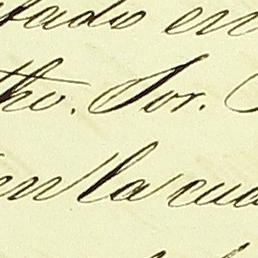 tado en
tho. Sor.
en la cua